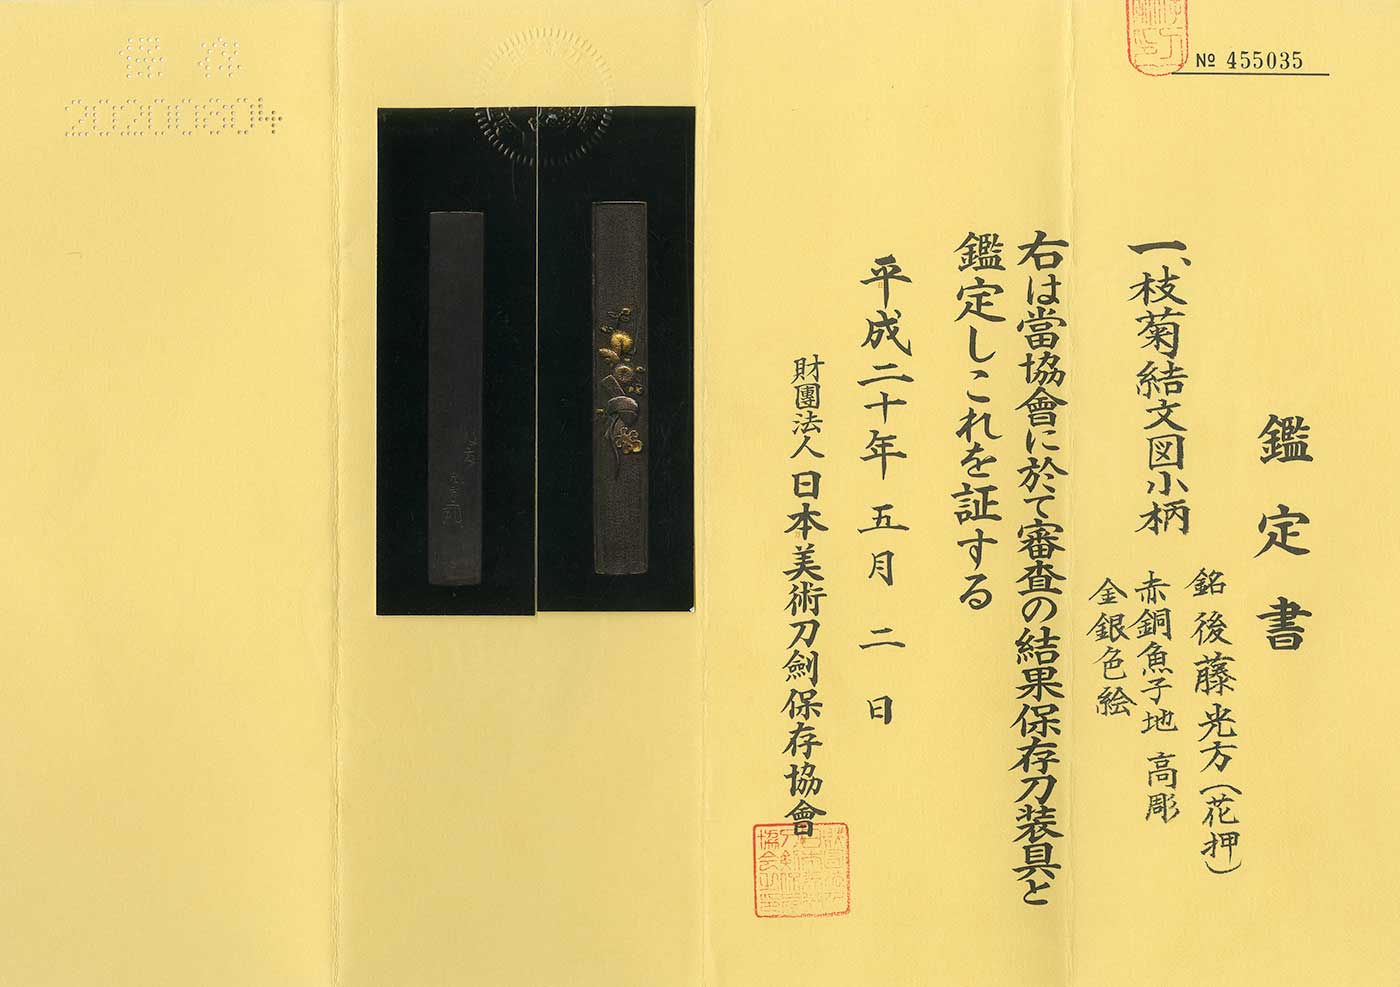 № 455035
鑑定書
一、枝菊結文図小柄
銘 後藤光方(花押)
赤銅魚子地 高彫
金銀色絵
右は當協會に於て審査の結果保存刀装具と
鑑定しこれを証する
平成二十年五月二日
財團法人日本美術刀劍保存協會
保存
20200604